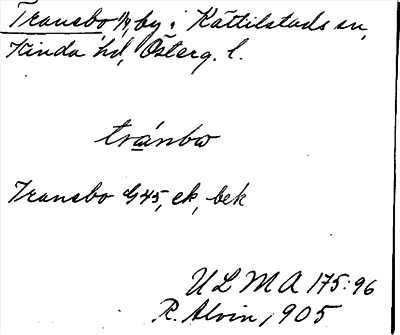 Transbo, by i Kättilstads sn,
Kinda hd, Österg. l.
tránbω
Transbo G45, ek, bek
ULMA 175:96
R. Alvin, 1905